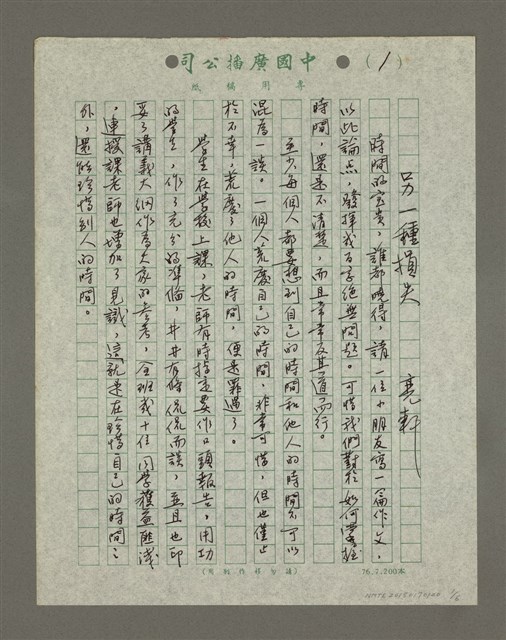 中國廣播公司
專用稿紙
(1)
另一種損失　亮軒
時間的寶貴，誰都曉得，請一位小朋友寫一篇作文，
以此論点，發揮幾百字絕無問題。可惜我們對於如何掌握
時間，還是不清楚，而且常常反其道而行。
至少每個人都要想到自己的時間和他人的時間是不可以
混為一談。一個人荒廢自己的時間，非常可惜，但也僅止
於不幸，荒廢了他人的時間，便是罪過了。
學生在學校上課，老師有時指定要作口頭報告，用功
的學生，作了充分的準備，井井有條侃侃而談，並且也印
妥了講義大綱作為大家的參考，全班幾十位同學獲益匪淺
，連授課老師也增加了見識，這就是在珍惜自己的時間之
外，還能珍惜別人的時間。
76.7.200本